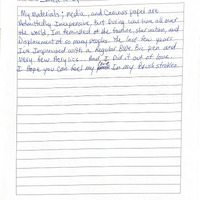 My materials; media, and Canvas paper are
Admittedly Inexpensive, But During war time all over
the world, I'm reminded of the famine, starvation, and
Displacement of so many peoples. The last few years
I've Improvised with a Regular Bic pen and
very few Acrylics. And, I Did it out of love.
I Hope you can feel my love In my Brush strokes.